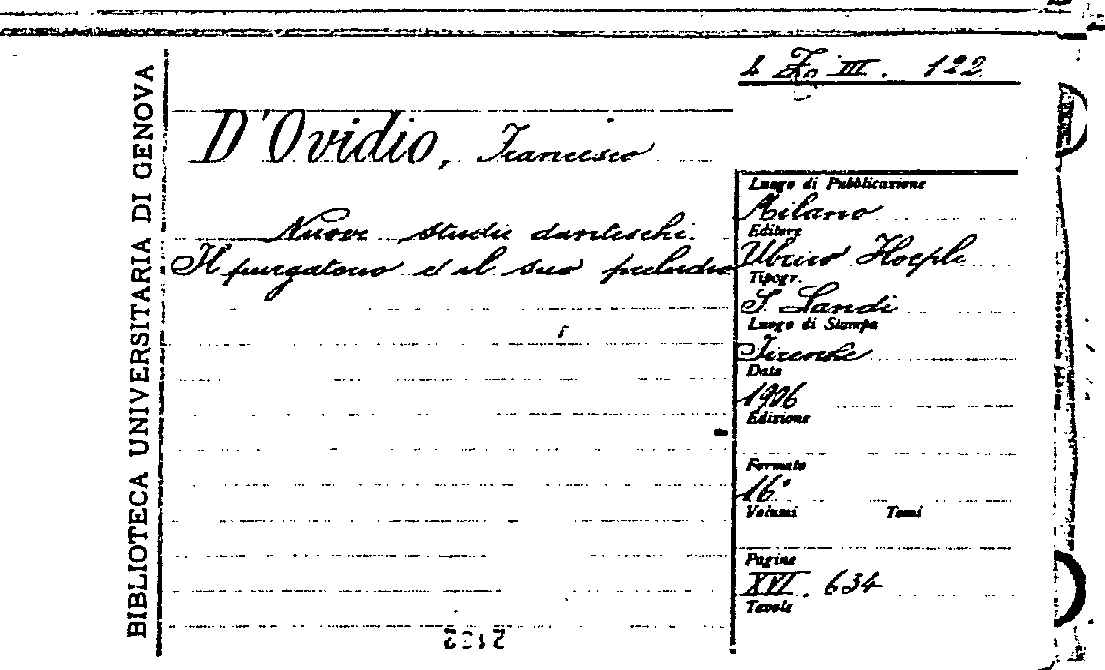 BIBLIOTECA UNIVERSITARIA DI GENOVA
III. 122
D'Ovidio, Francesco
Nuovi studii danteschi.
Il purgatorio e il suo preludio
Luogo di Pubblicazione
Milano
Editore
Ulrico Hoepli
Tipogr.
S. Landi
Luogo di Stampa
Firenze
Data
1906
Edizione
Formato
16°
Volumi Tomi
Pagine
XVI. 634
Tavole